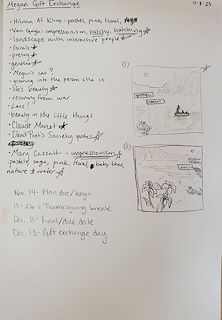 Megan Gift Exchange
11-8-23
• Hilma Af Klint - pastel, pink, floral,
• Van Gogh - impressionism, patchy, hatching
• landscape with interactive people
• florals
• poetry
• Megan's
• growing into the person she is
• life's beauty
• recovery from war
• Laos
• beauty in the little things
• Claude Monet
• Dead Poet's Society quotes
• Mary Cassatt - impressionism
pastels, sage, pink, floral, baby blue,
nature + water
Nov 14 - Plan due/begin
18-26 = Thanksgiving break
Dec 11 - Final/due date
Dec 13 - Gift exchange day
1
2